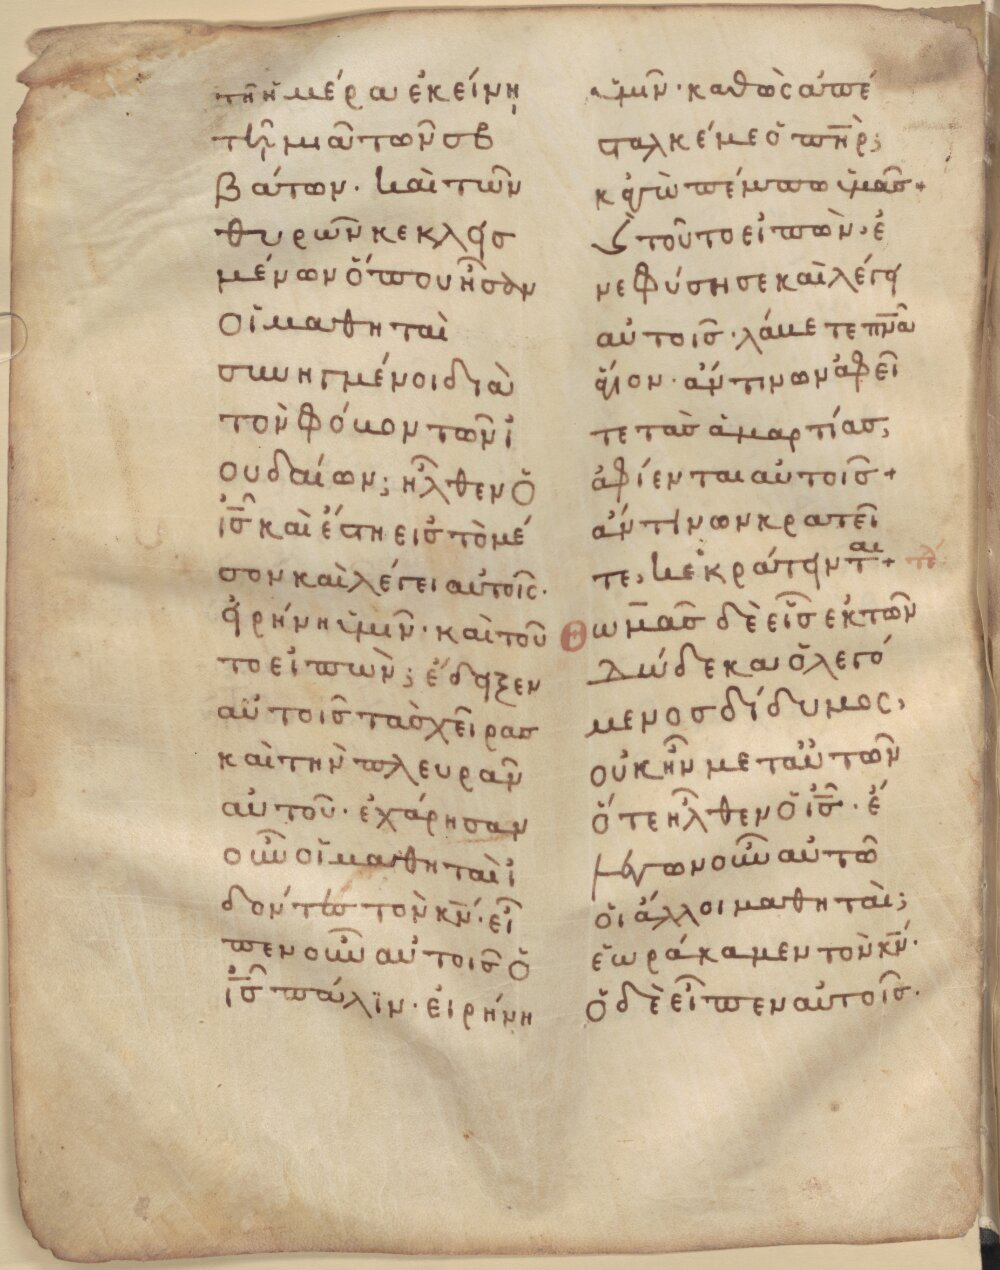 τῆ ἡμέρα ἐκείνη
τῆ μιᾶ τῶν σαβ
βάτων· καὶ τῶν
θυρῶν κεκλεισ
μένων ὅπου ἦσαν
οἱ μαθηταὶ
συνηγμένοι διὰ
τὸν φόβον τῶν ἰ
ουδαίων; ἦλθεν ὁ
ἰς̅ καὶ ἔστη εἰς τὸ μέ
σον καὶ λέγει αὐτοῖς·
εἰρήνη ὑμῖν· καὶ τοῦ
το εἰπὼν; ἔδειξεν
αὐτοῖς τὰς χεῖρας
καὶ τὴν πλευρὰν
αὐτοῦ· ἐχάρησαν
οὖν οἱ μαθηταὶ ἰ
δόντες τὸν κν̅· εἶ
πεν οὖν αὐτοῖς ὁ
ἰς̅ πάλιν· εἰρήνη
ὑμῖν· καθὼς ἀπέ
σταλκέ με ὁ πη̅ρ;
κἀγὼ πέμπω ὑμᾶς+
ϗ τοῦτο εἰπὼν· ἐ
νεφύσησε καὶ λέγει
αὐτοῖς· λάβετε πν̅α
ἅγιον· ἄν τινων ἀφεῖ
τε τὰς ἁμαρτίας,
ἀφίενται αὐτοῖς+
ἄν τινων κρατεῖ
τε, κεκράτηνται+
Θωμᾶς δὲ εἷς ἐκ τῶν
δώδεκα ὁ λεγό
μενος δίδυμος,
οὐκ ἦν μετ αὐτῶν
ὅτε ἦλθεν ὁ ἰς̅· ἔ
λεγων οὖν αὐτῶ
οἱ ἄλλοι μαθηταὶ;
ἑωράκαμεν τὸν κν̅·
ὁ δὲ εἶπεν αὐτοῖς·